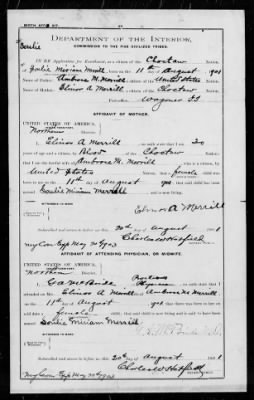 DEPARTMENT OF THE INTERIOR,
COMMISSION TO THE FIVE CIVILIZED TRIBES.
IN RE Application for Enrollment, as a citizen of the Choctaw Nation,
of Miriam Merrill, born on the 11th day of August, 1901
Name of Father: Ambrose M. Merrill a citizen of the United States Nation.
Name of Mother: Elinor A Merrill a citizen of the Choctaw Nation.
Postoffice, Wagoner I.T.
AFFIDAVIT OF MOTHER.
UNITED STATES OF AMERICA,
Northern District.
I, Elinor A Merrill, on oath state that I am 20
years of age and a citizen by Blood, of the Choctaw Nation;
that I am the lawful wife of Ambrose M. Merrill, who is a citizen, by
of the United States Nation; that a female child was
born to me on 11th day of August, 1901, that said child has been
named Miriam Merrill, and is now living.
Elinor A Merrill
Subscribed and sworn to before me this 20th day of August 1901
Charles W Hatfield
My Com Exp May 30 1903
AFFIDAVIT OF ATTENDING PHYSICIAN, OR MIDWIFE.
UNITED STATES OF AMERICA,
Northern District.
I, McBride, a Physician, on oath state that I
attended on Mrs. Elinor A Merrill, wife of Ambrose M Merrill
on the 11th day of August, 1901, that there was born to her on
said date a female child; that said child is now living and is said to have been
named Miriam Merrill
Subscribed and sworn to before me this 20th day of August 1901
Charles W Hatfield
My Com Exp May 30 1903